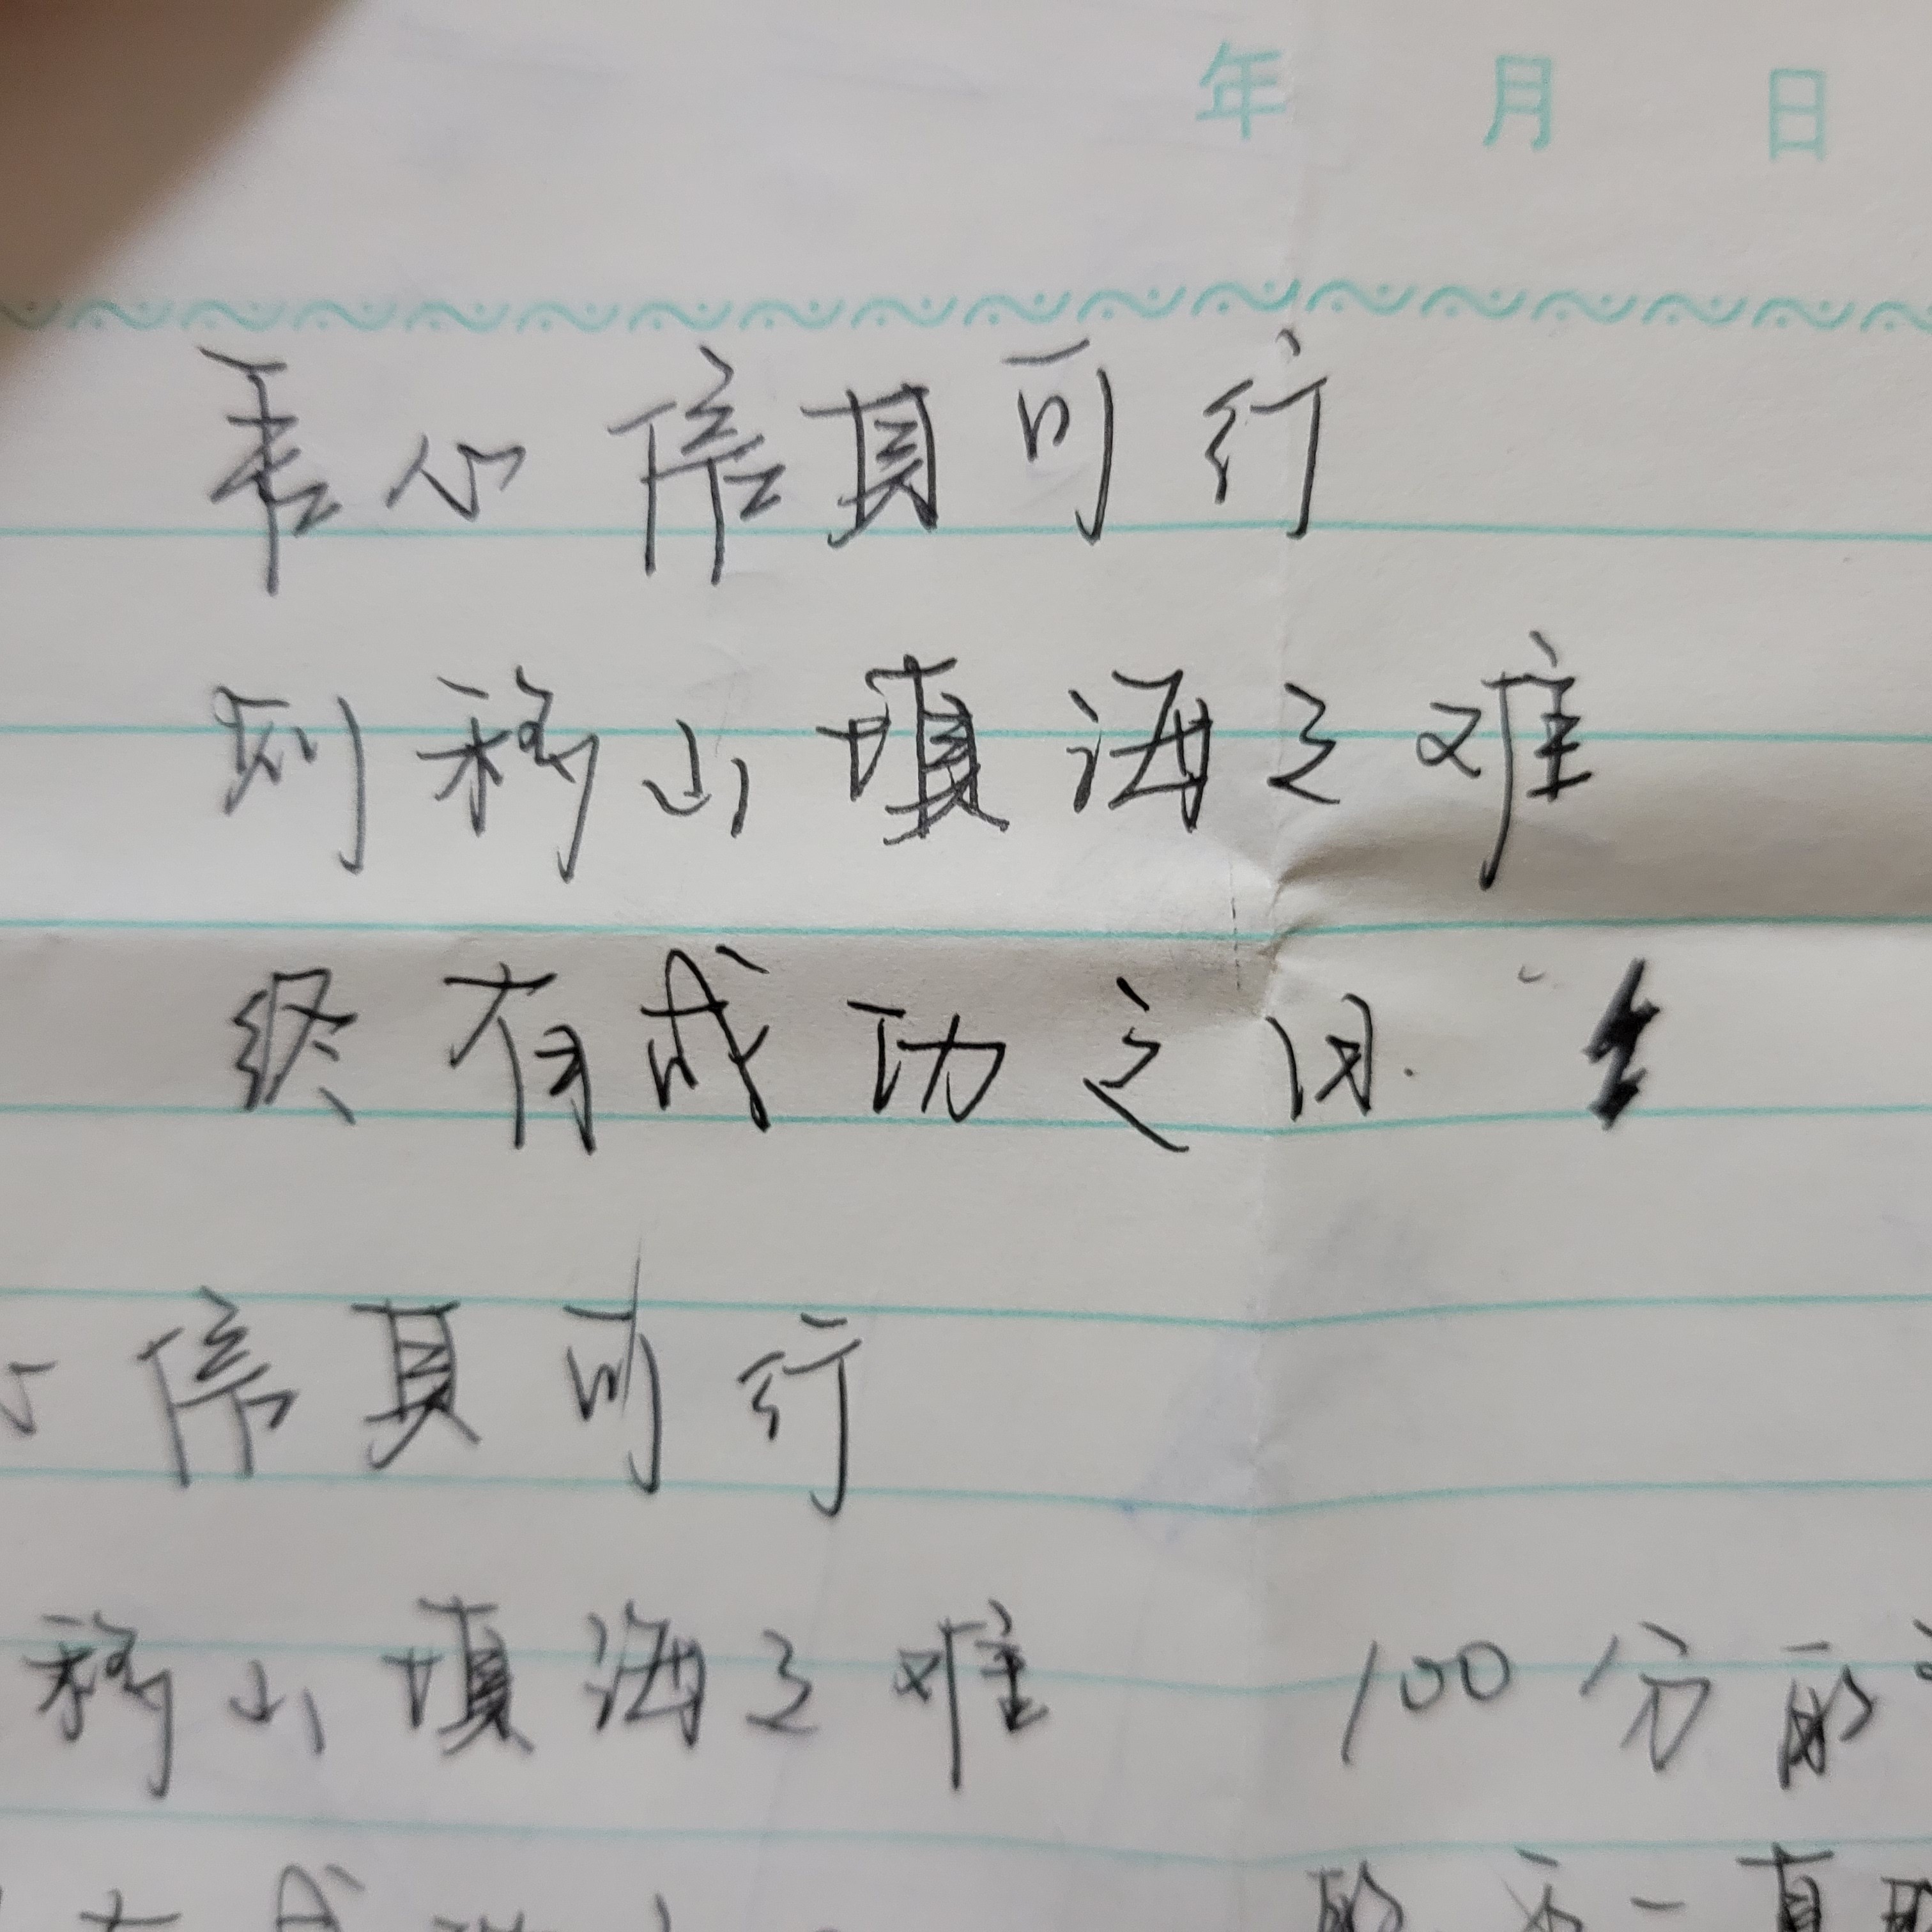 年 月 日
心信其可行
则移山填海之难
终有成功之日.
信其可行
移山填海之难 100分的
有成
的 一真